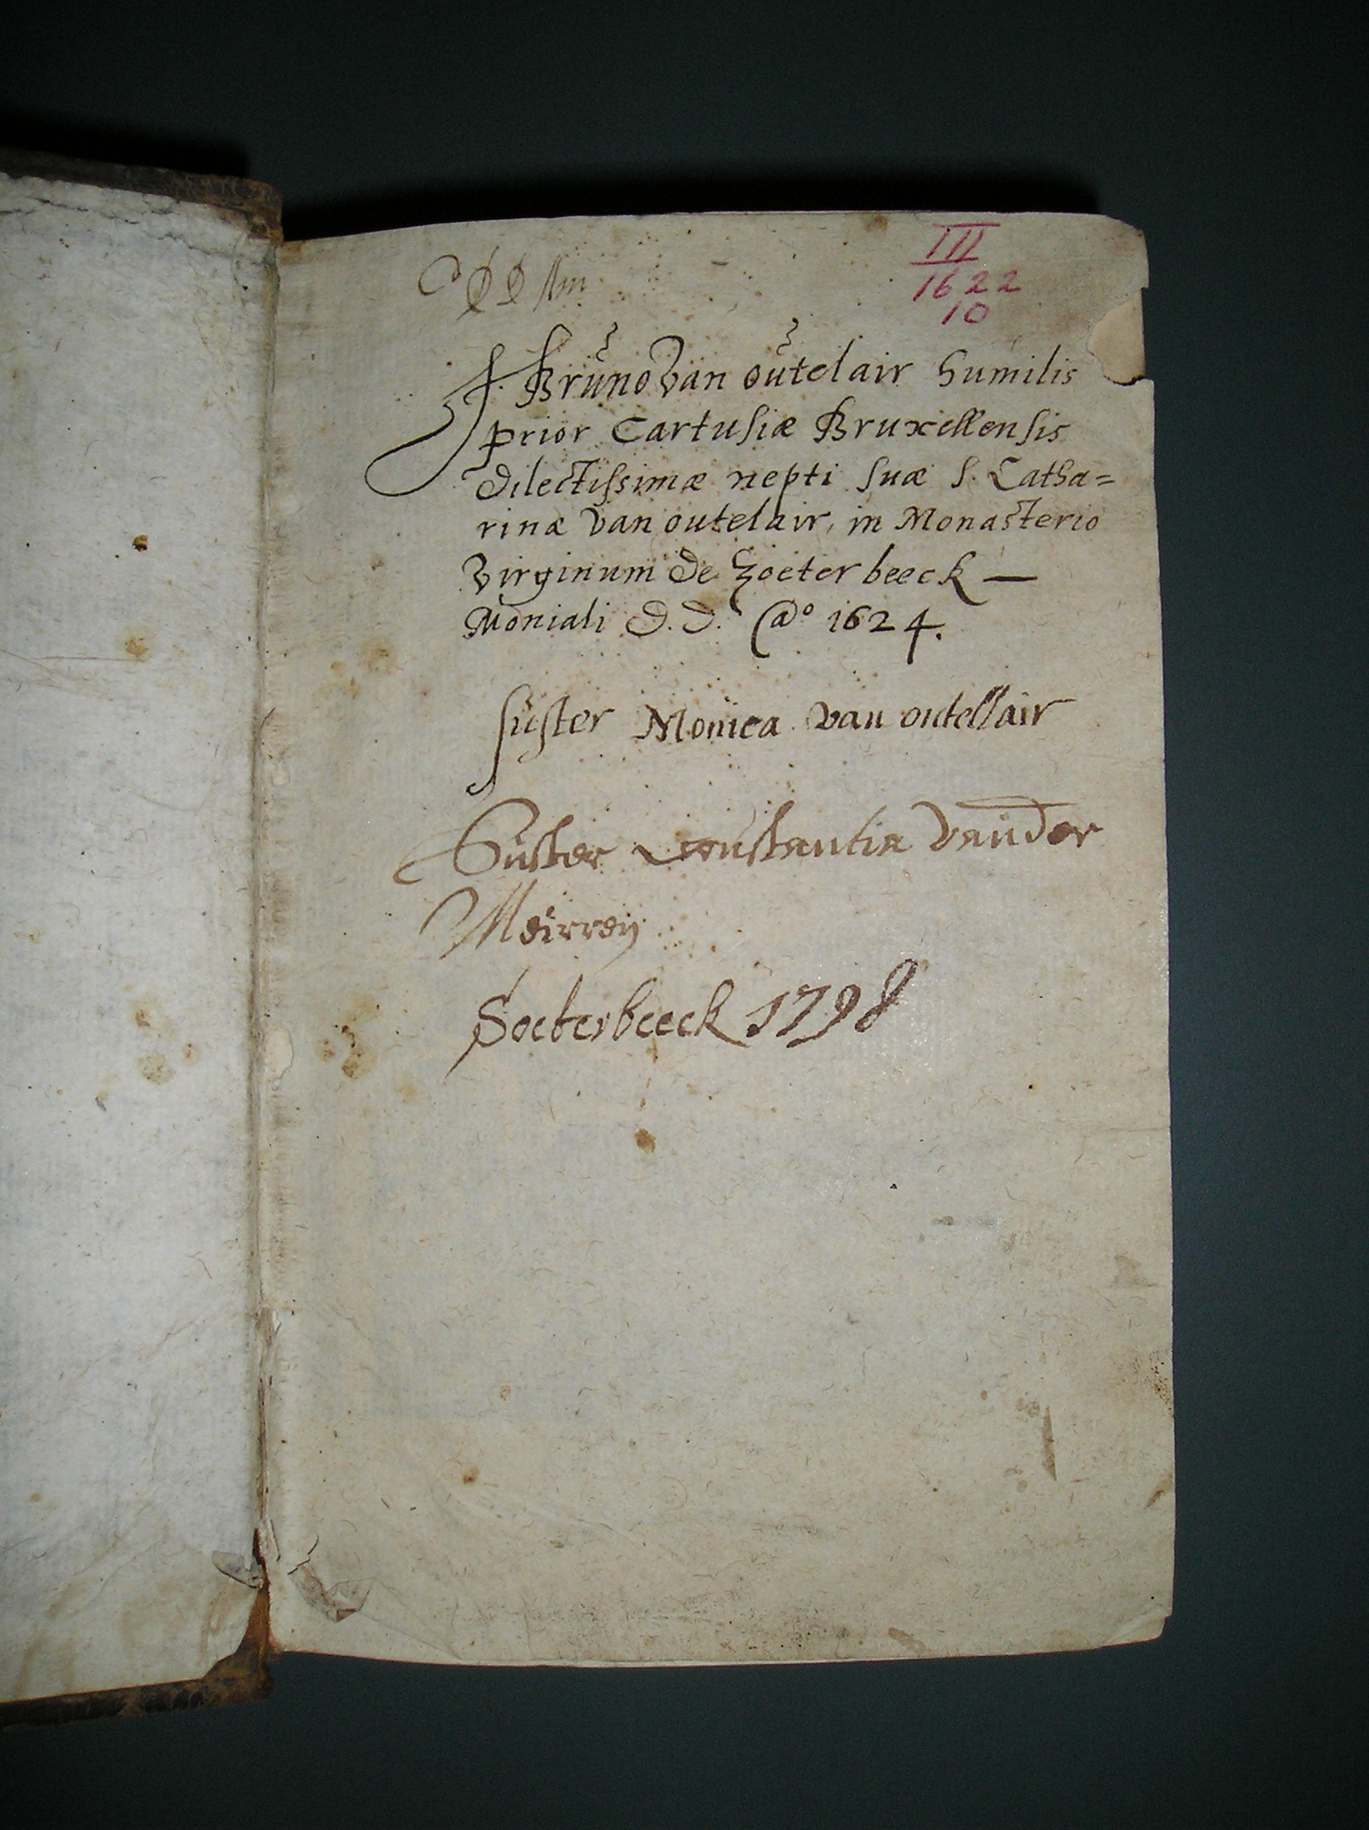 III
1622
10
F. Bruno Van outelair humilis
prior Cartusiæ Bruxellensis
dilectissimæ nepti suæ S. Catha=
rinæ Van outelair, in Monasterio
Virginum de Zoeterbeeck —
Moniali D. D. Aº 1624.
suster Monica van outellair
Suster Constantia Vander
Meirren
Soeterbeeck 1798